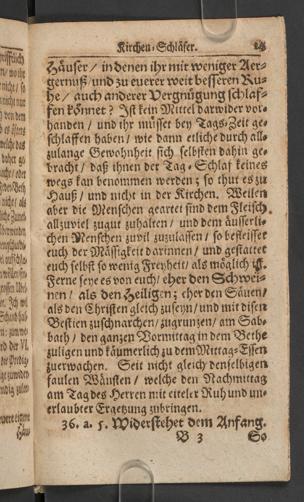 Kirchen-Schläfer. 21
Häuser / in denen ihr mit weniger Aer-
gernuß / und zu euerer weit besseren Ru-
he / auch anderer Vergnügung schlaf-
fen könnet? Ist kein Mittel darwider vor-
handen / und ihr müsset bey Tags-Zeit ge-
schlaffen haben / wie dann etliche durch all-
zulange Gewohnheit sich selbsten dahin ge-
bracht / daß ihnen der Tag-Schlaf keines
wegs kan benommen werden; so thut es zu
Hauß / und nicht in der Kirchen. Weilen
aber die Menschen geartet sind dem Fleisch
allzuviel zugut zuhalten / und dem äusserli-
chen Menschen zuvil zuzulassen / so befleisset
euch der Mässigkeit darinnen / und gestattet
euch selbst so wenig Freyheit / als möglich ist.
Ferne seye es von euch / eher den Schwei-
nen / als den Heiligen; eher den Säuen /
als den Christen gleich zuseyn / und mit disen
Bestien zuschnarchen / zugrunzen / am Sab-
bath / den ganzen Vormittag in dem Bethe
zuligen und käumerlich zu dem Mittag-Essen
zuerwachen. Seit nicht gleich denselbigen
faulen Wänsten / welche den Nachmittag
am Tag des Herren mit eiteler Ruh und un-
erlaubter Ergetzung zubringen.
36. a. 5. Widerstehet dem Anfang.
B 3 So